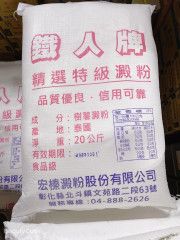 鐵人牌
精選特級澱粉
品質優良．信用可靠
成分：樹薯澱粉
產地：泰國
淨重：20公斤
有效期限：
食品級
宏榛澱粉股份有限公司
彰化縣北斗鎮文苑路二段63號
服務專線：04-888-2626